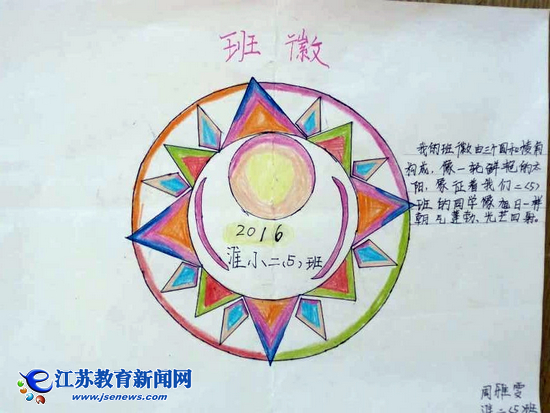 班徽
2016
淮小二(5)班
我的班徽由三个圆和棱角
构成,像一轮鲜艳的太
阳,象征着我们二(5)
班的同学像旭日一样
朝气蓬勃、光芒四射。
周雅雯
淮二(5)班
江苏教育新闻网
www.jsenews.com